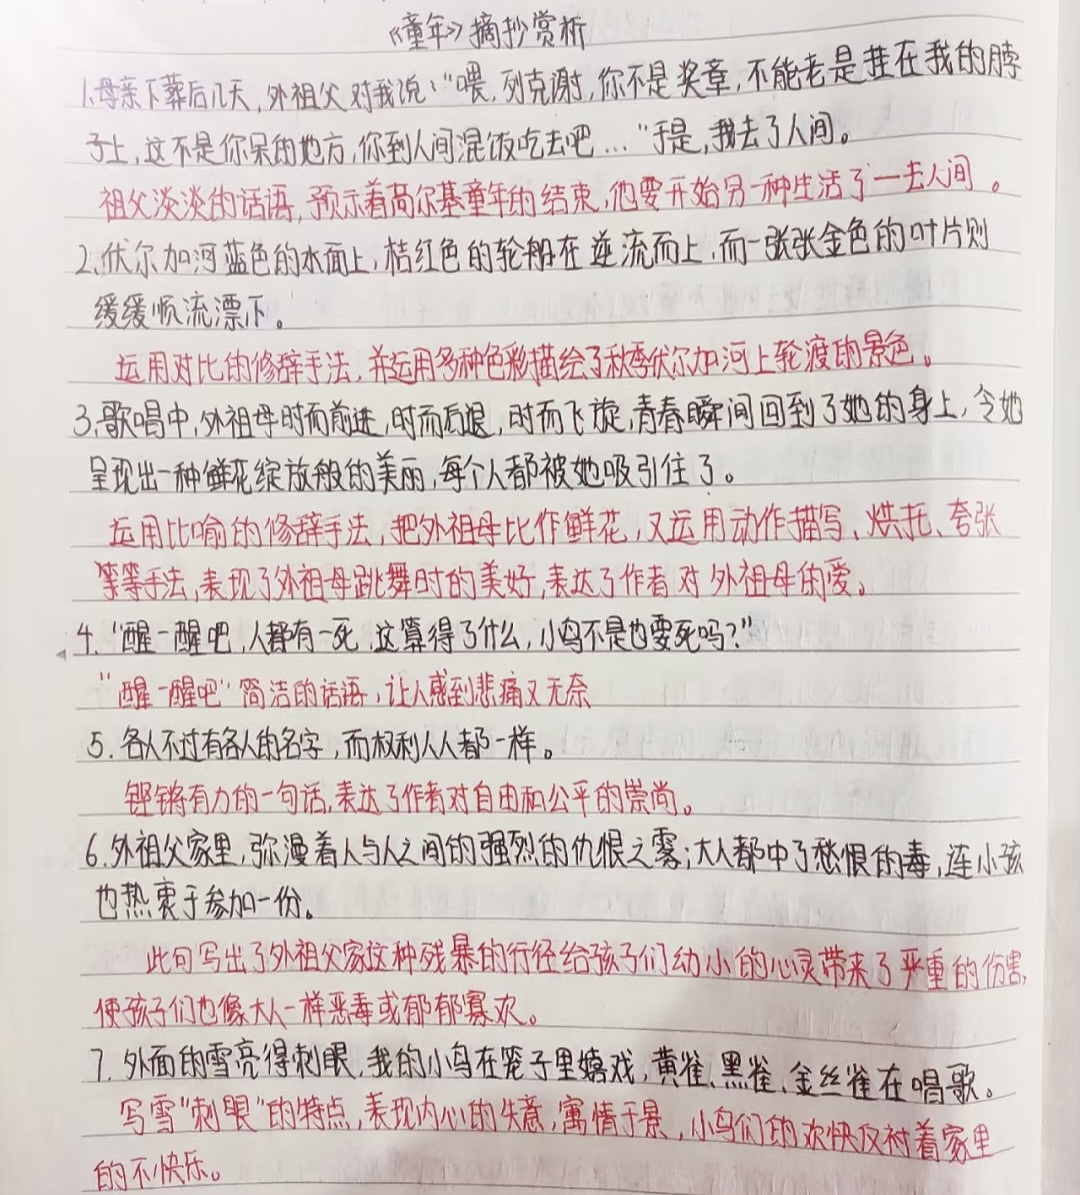 《童年》摘抄赏析
1.母亲下葬后几天,外祖父对我说:“喂,列克谢,你不是奖章,不能老是挂在我的脖
子上,这不是你呆的地方,你到人间混饭吃去吧…”于是,我去了人间。
祖父淡淡的话语,预示着高尔基童年的结束,他要开始另一种生活了一去人间。
2.伏尔加河蓝色的水面上,桔红色的轮船在逆流而上,而一张张金色的叶片则
缓缓顺流漂下。
运用对比的修辞手法,并运用多种色彩描绘了秋季伏尔加河上轮渡的景色。
3.歌唱中,外祖母时而前进,时而后退,时而飞旋,青春瞬间回到了她的身上,令她
呈现出一种鲜花绽放般的美丽,每个人都被她吸引住了。
运用比喻的修辞手法,把外祖母比作鲜花,又运用动作描写、烘托、夸张
等等手法,表现了外祖母跳舞时的美好,表达了作者对外祖母的爱。
4.“醒一醒吧,人都有一死,这算得了什么,小鸟不是也要死吗?”
“醒一醒吧”简洁的话语,让人感到悲痛又无奈
5.各人不过有各人的名字,而权利人人都一样。
铿锵有力的一句话,表达了作者对自由和公平的崇尚。
6.外祖父家里,弥漫着人与人之间的强烈的仇恨之雾;大人都中了愁恨的毒,连小孩
也热衷于参加一份。
此句写出了外祖父家这种残暴的行径给孩子们幼小的心灵带来了严重的伤害,
使孩子们也像大人一样恶毒或郁郁寡欢。
7.外面的雪亮得刺眼,我的小鸟在笼子里嬉戏,黄雀、黑雀、金丝雀在唱歌。
写雪“刺眼”的特点,表现内心的失意,寓情于景,小鸟们的欢快反衬着家里
的不快乐。